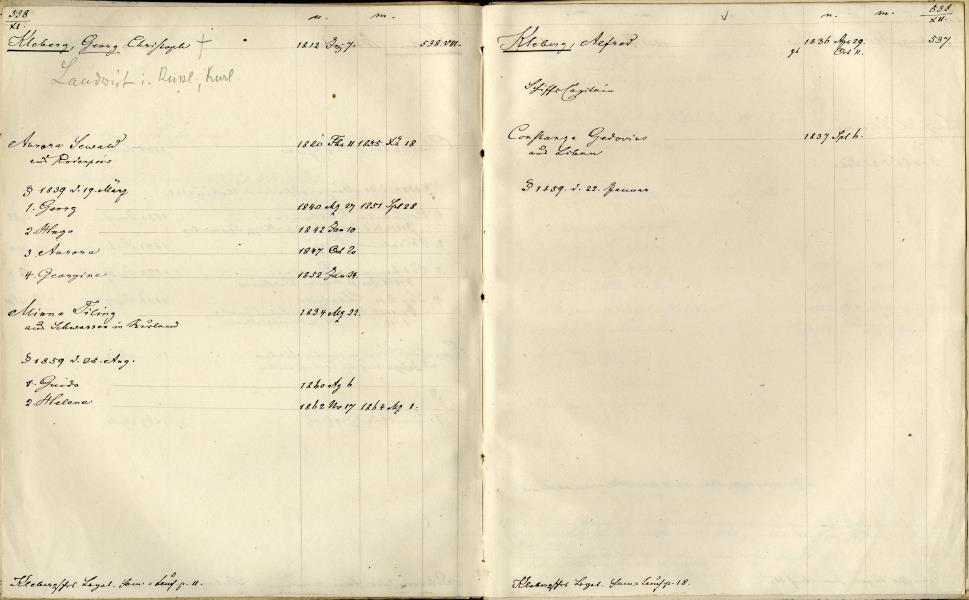 538
XI.
n. m.
Kleberg, Georg Christoph † 1812 7. 538.VIII.
Landwirt i. Russl., Kurl.
Aurora Sewald 1820 Fbr 11 1855 18
aus Rodenpois
§ 1839 d. 19. März
1. Georg 1840 Ag 27 1851 Spt 28
2. Hugo 1842 Jan 10
3 Aurora 1847. Oct 20
4. Georgine 1852 Jan 24.
Minna Tiling 1834 22.
aus Schwarren in Kurland
§ 1859 d. 25. Aug.
1. Guido 1860 Ag 6
2. Helene 1862 No 17 1864 1.
Klebergsches Legat. p. 11.
538
XII.
n. m.
Kleberg, Alfred 1836 Apr 29. 537.
gt Oct 11.
Schiffs Capitain
Constanze Gedovius 1837 Spt 6.
aus Libau
§ 1859. d. 22. Januar
Klebergsches Legat. p. 18.